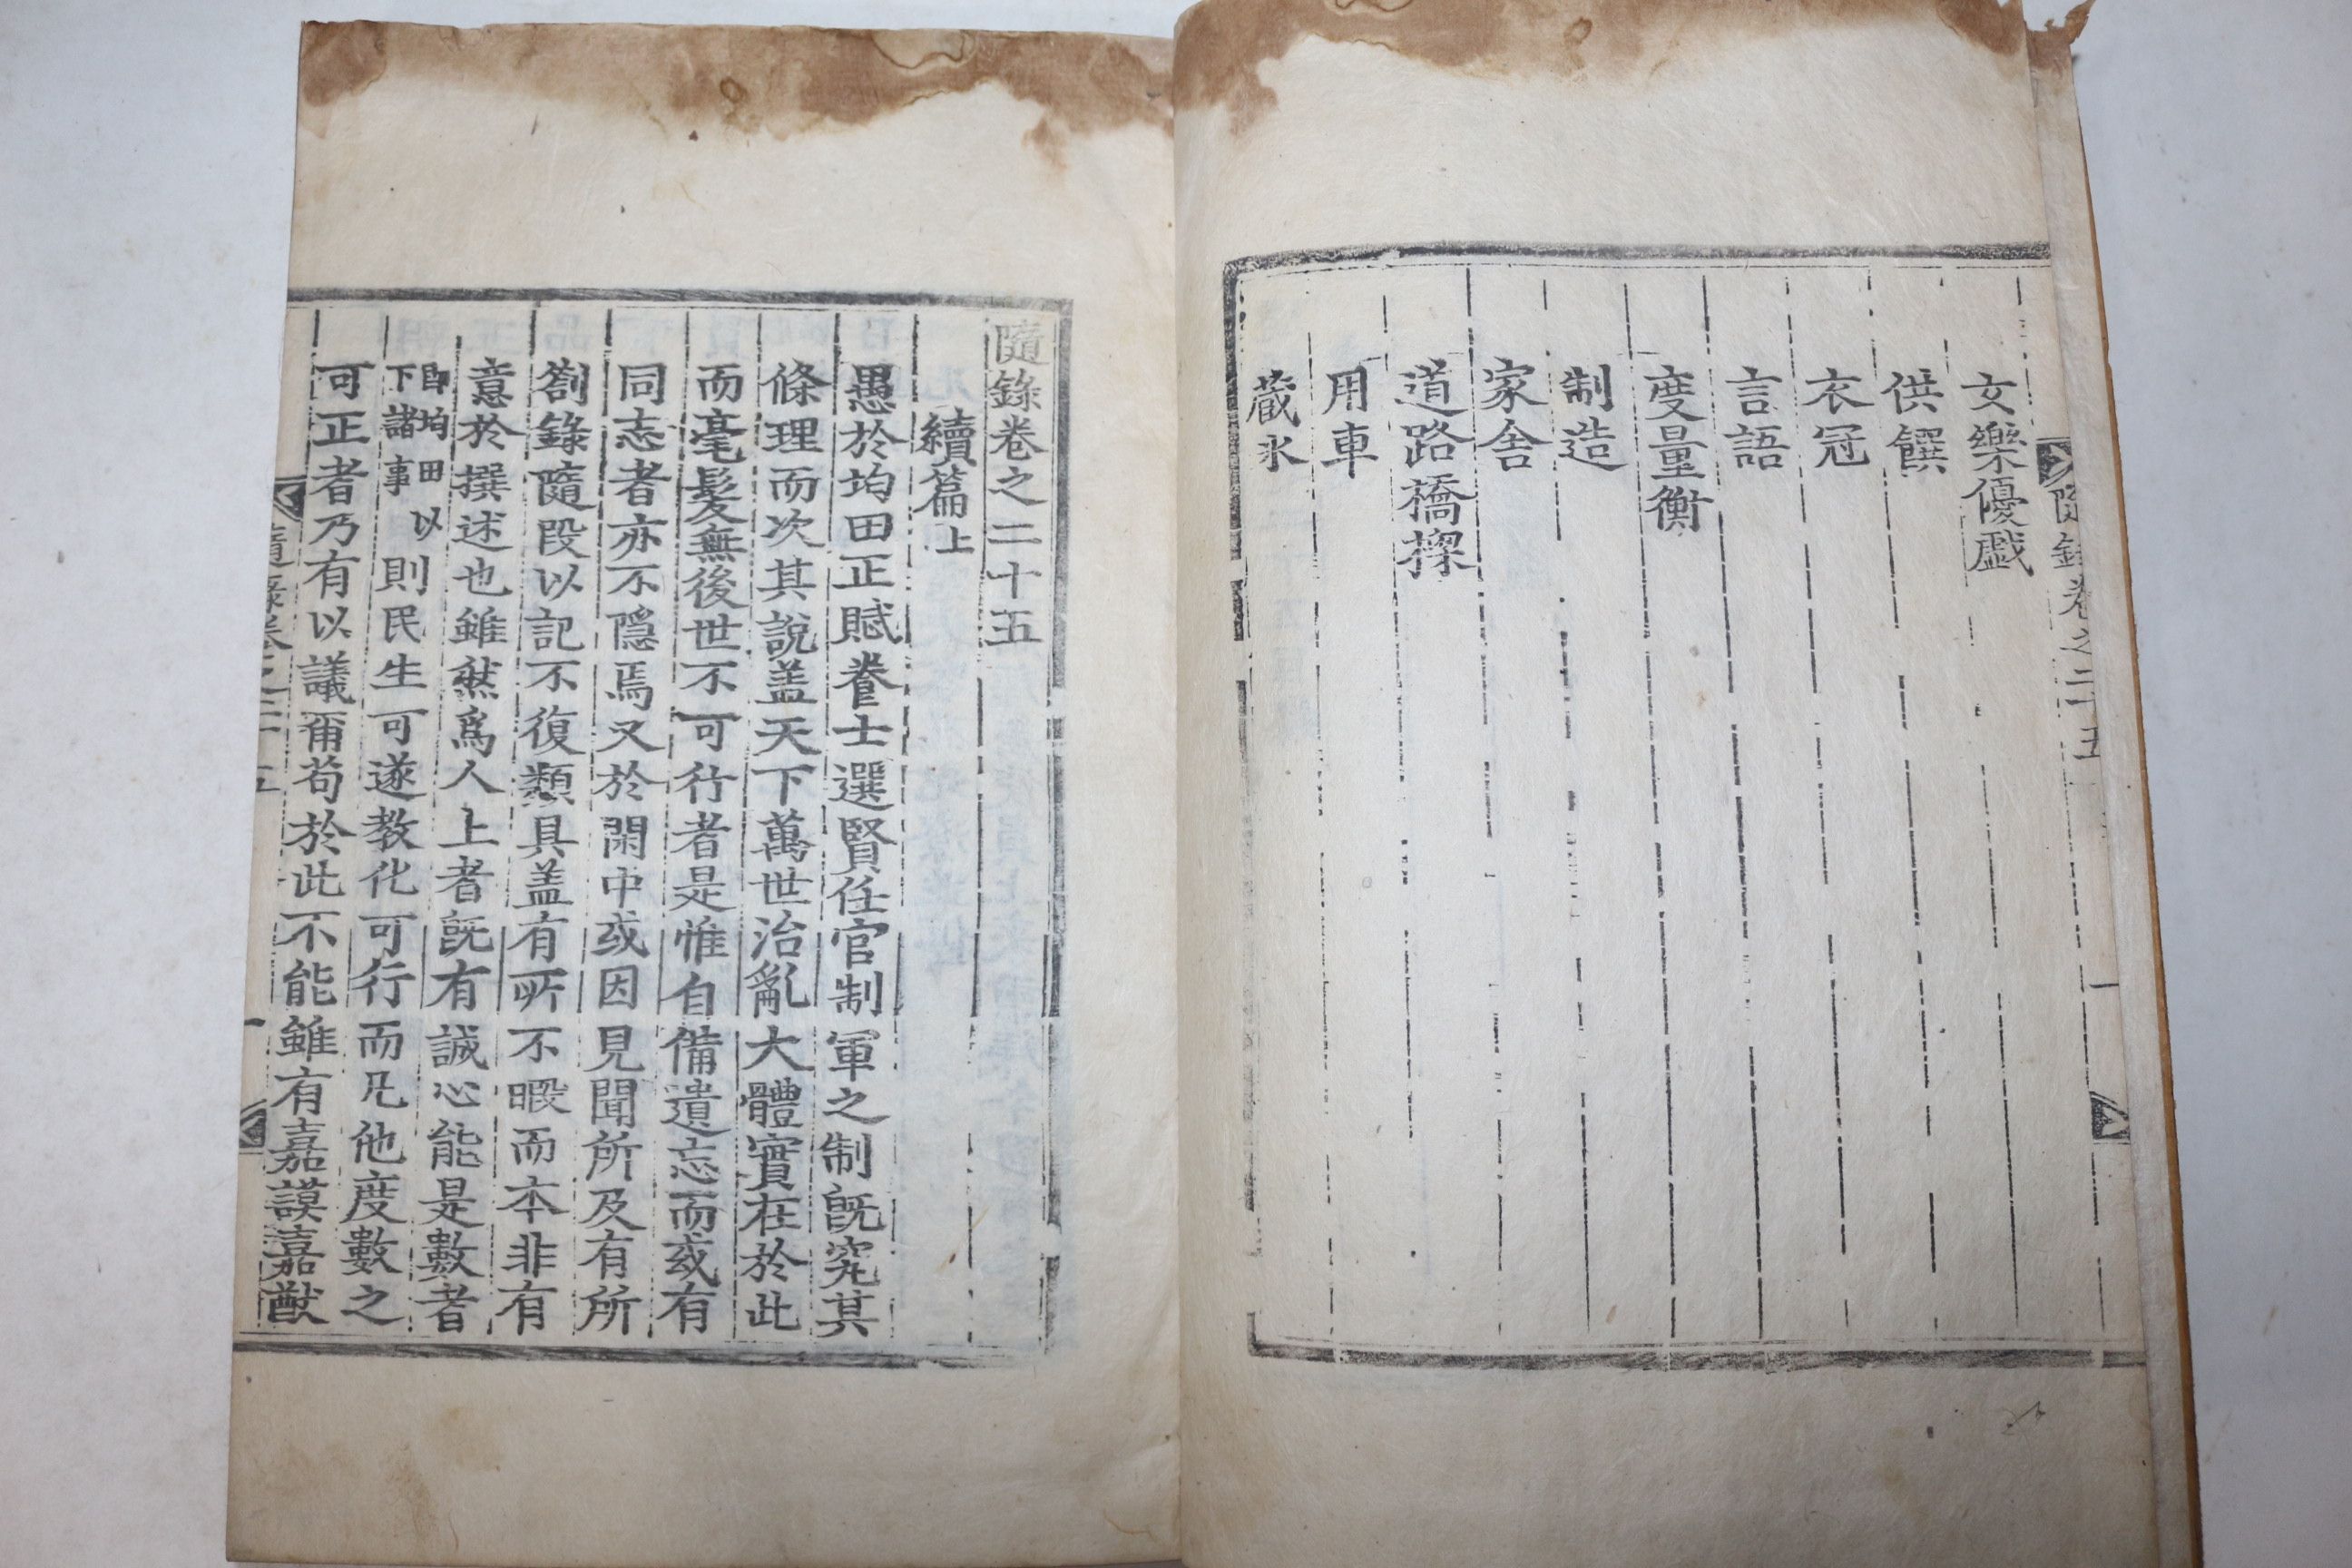 女樂優戱
供饌
衣冠
言語
度量衡
制造
家舍
道路橋梁
用車
蔵氷
隨錄卷之二十五
隨錄卷之二十五
續篇上
愚於均田正賦養士選賢任官制軍之制旣究其
條理而次其說盖天下萬世治亂大體實在於此
而毫髮無後世不可行者是惟自備遺忘而或有
同志者亦不隱焉又於閑中或因見聞所及有所
劄錄隨段以記不復類具盖有所不暇而本非有
意於撰述也雖然爲人上者旣有誠心能是數者
卽均田以下諸事則民生可遂教化可行而凡他度數之
可正者乃有以議爾苟於此不能雖有嘉謨嘉猷
隨錄卷之二十五